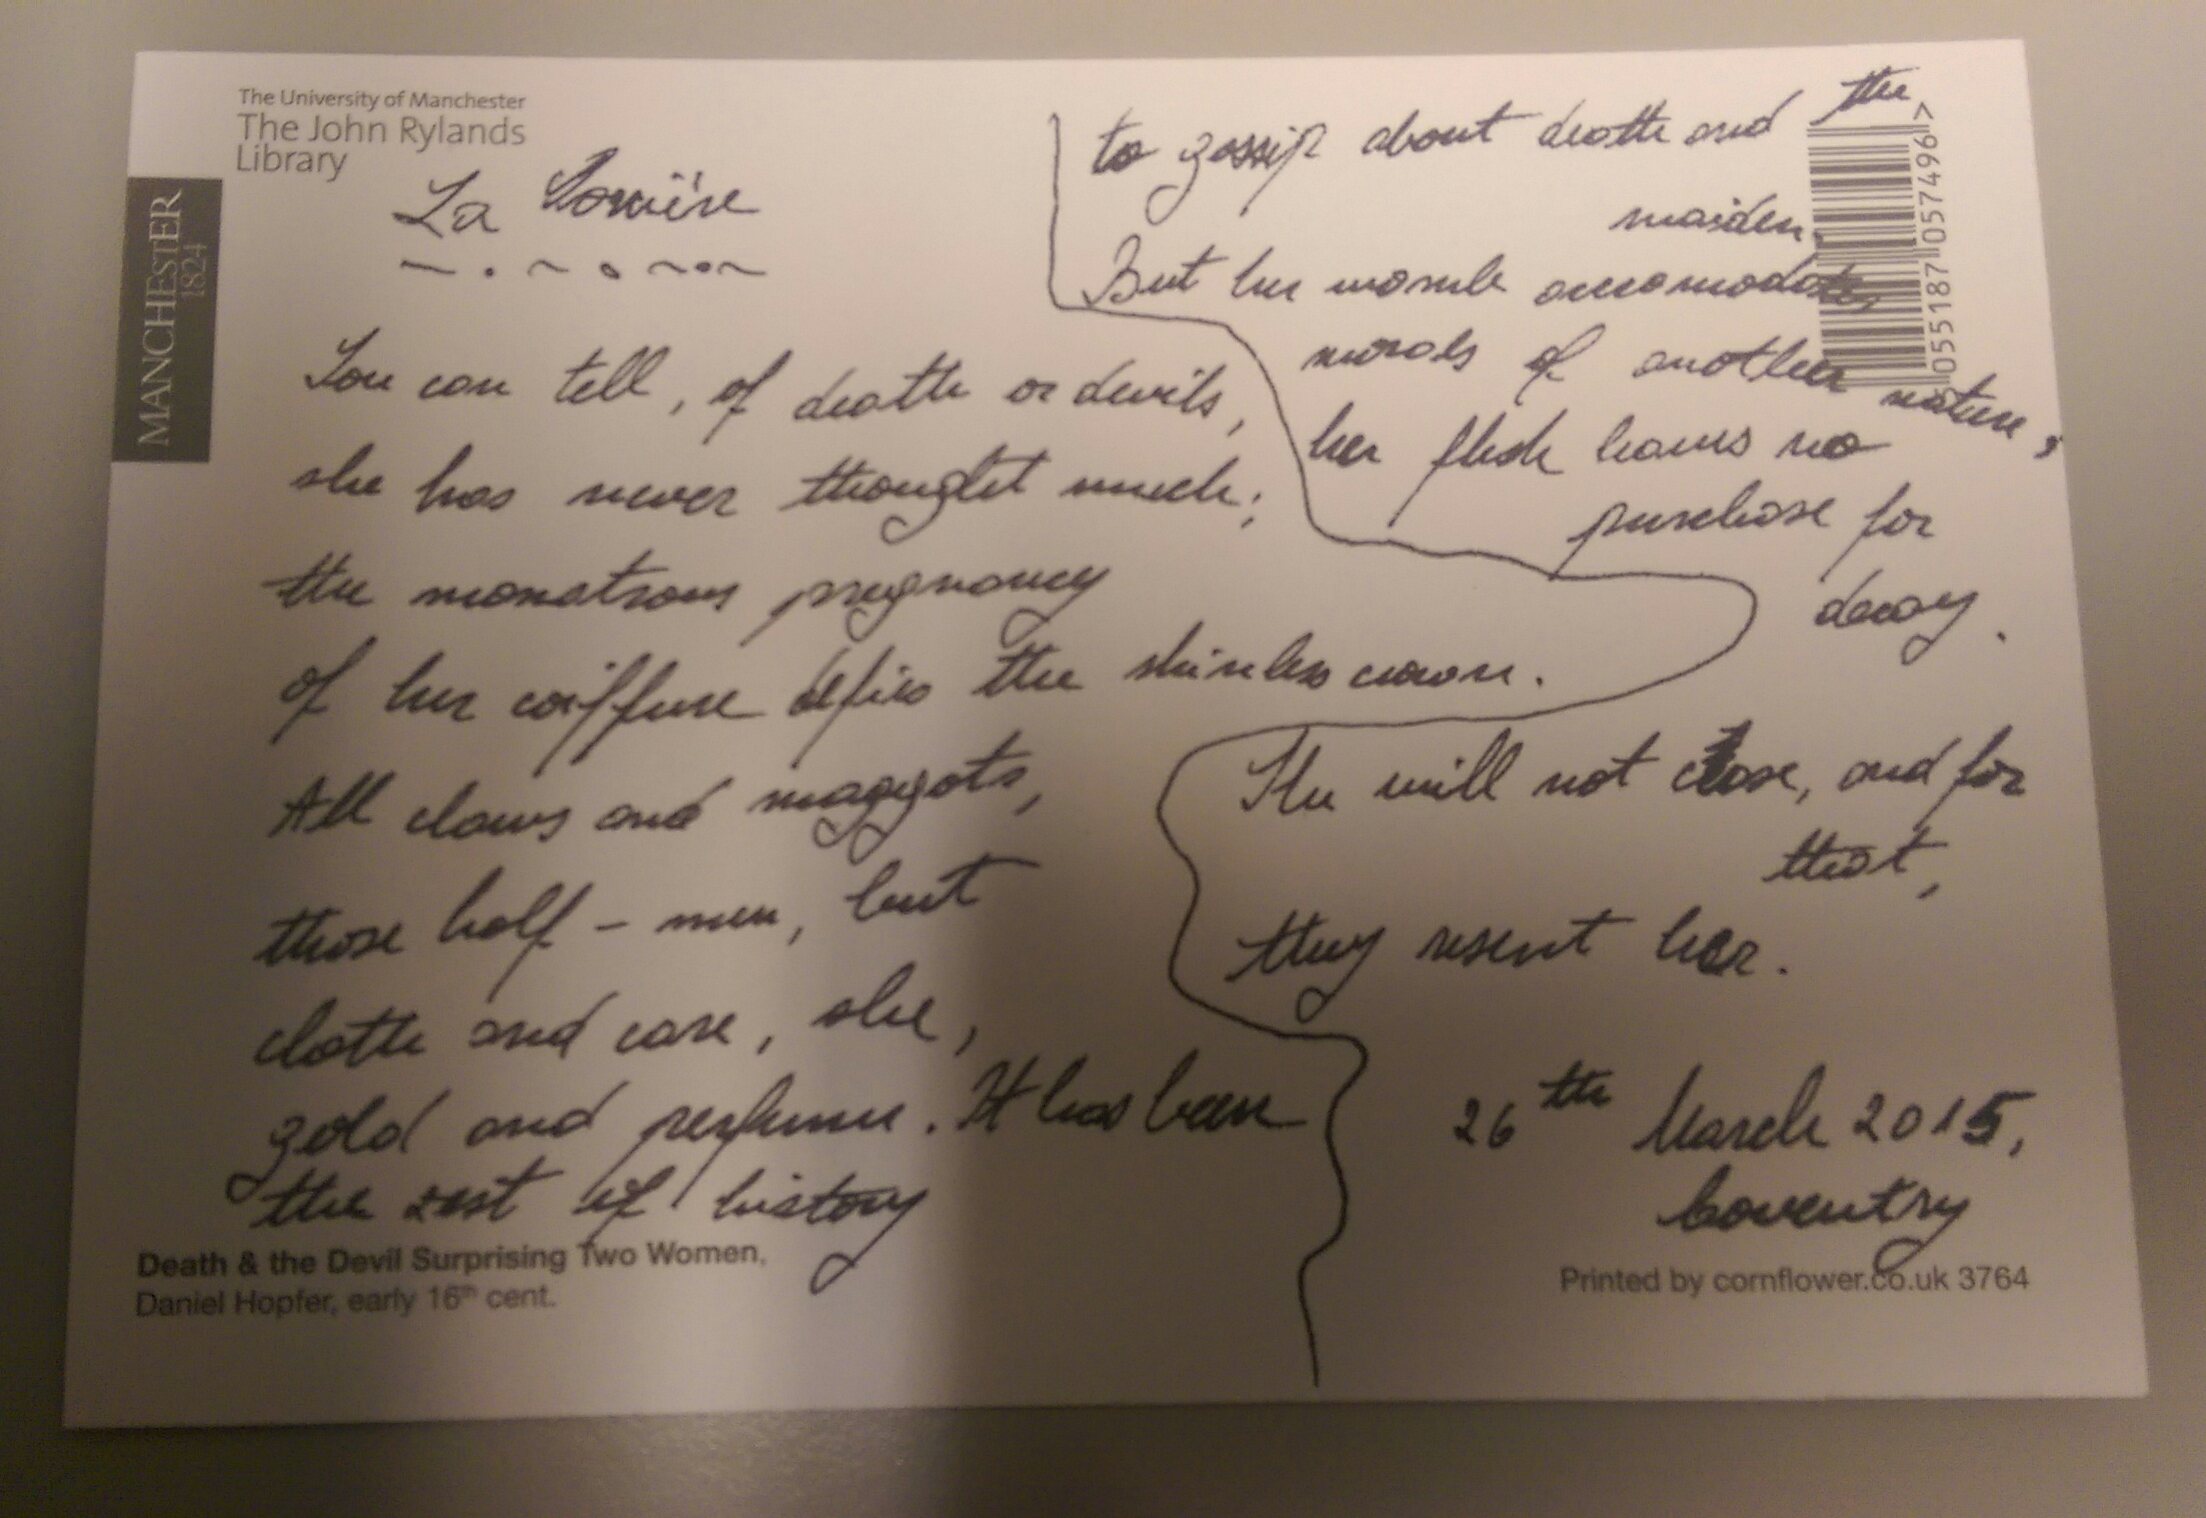 The University of Manchester
The John Rylands
Library
MANCHESTER
1824
La Sorcière
You can tell, of death or devils,
she has never thought much;
the monstrous pregnancy
of her coiffure defies the skinless crown.
All claws and maggots,
those half-men, but
cloth and care, she,
gold and perfume. It has been
the zest of history
to gossip about death and the
maiden.
But her accomodates
of another nature,
her flesh leaves no
purchase for
decay.
She will not close, and for
that,
they resent her.
26th March 2015,
Coventry
5055187057496>
Death & the Devil Surprising Two Women,
Daniel Hopfer, early 16th cent.
Printed by cornflower.co.uk 3764